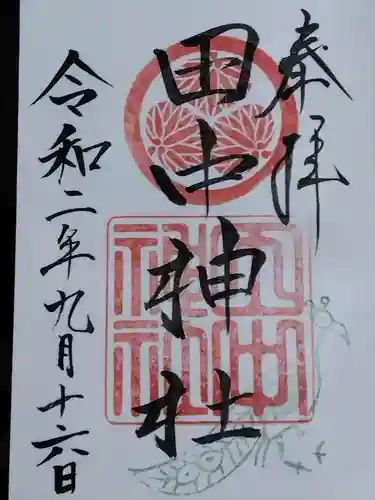 奉拝
田中神社
令和二年九月十六日
田中
神社